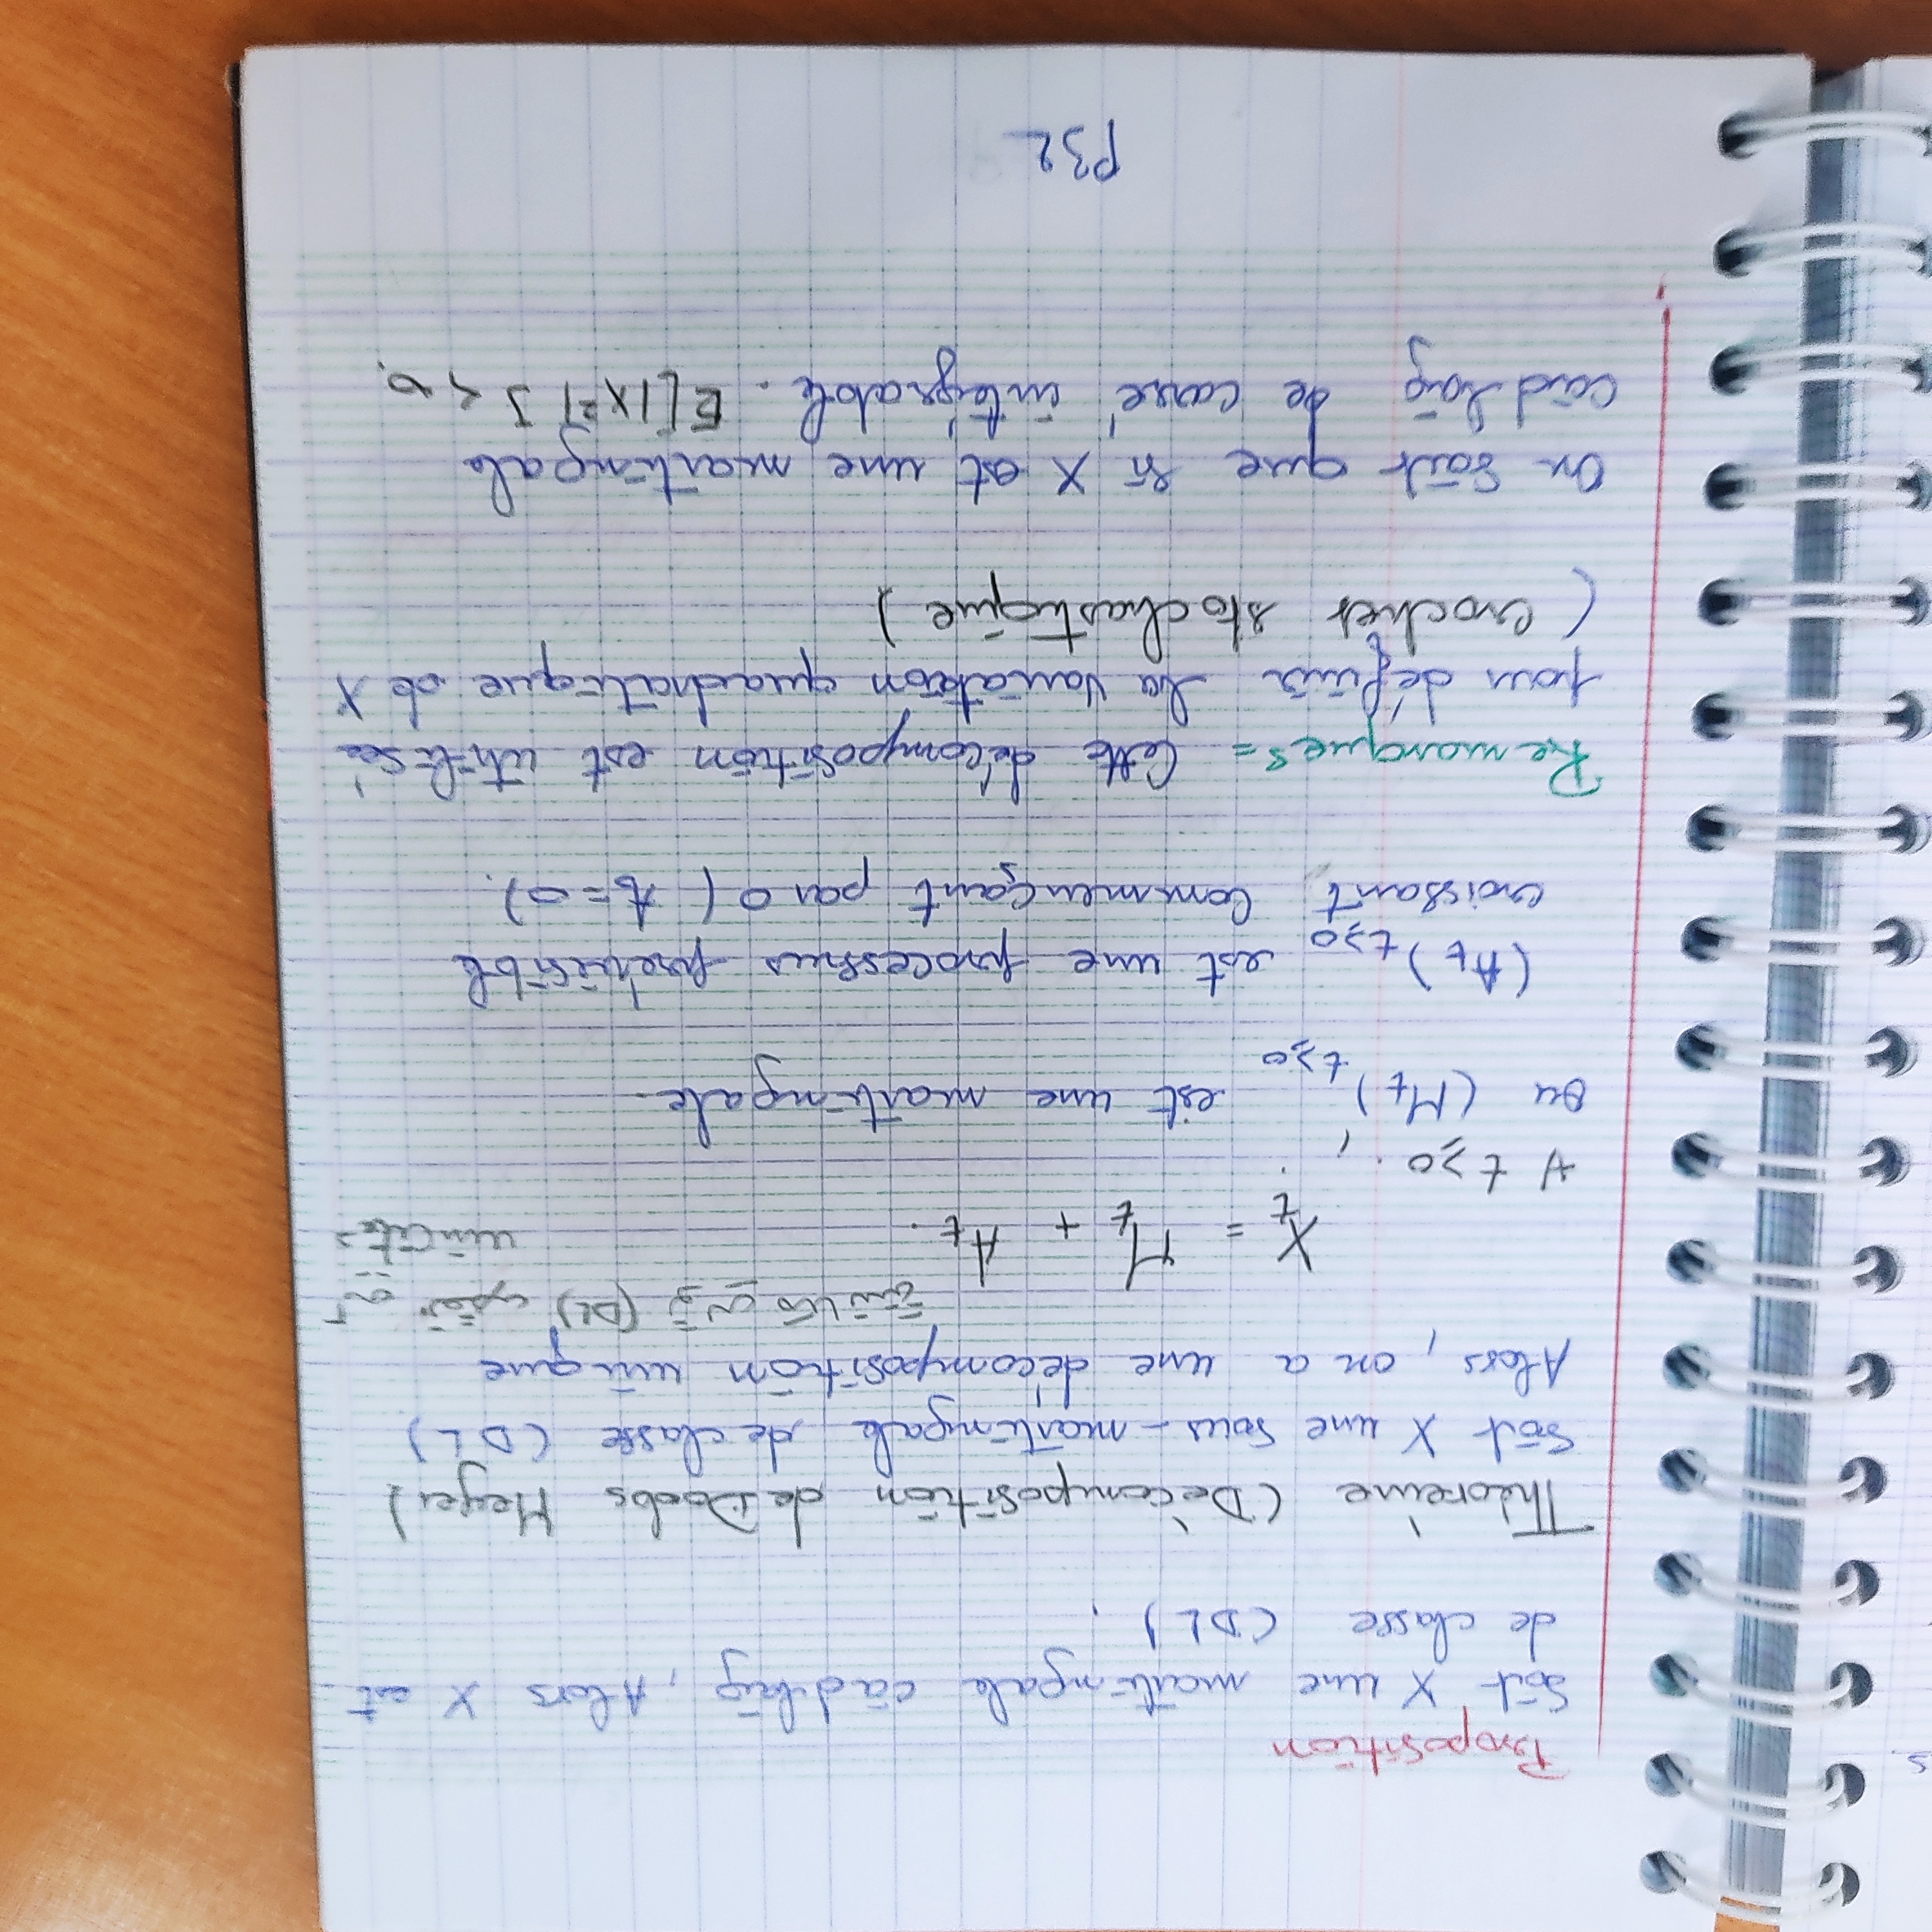 s.
Proposition
Soit X une martingale càdlàg, Alors X est
de classe (DL).
Théorème (Décomposition de Doobs Meyer)
Soit X une sous-martingale de classe (DL)
Alors, on a une décomposition unique
(DL)
X_t = M_t + A_t.
unicité
∀ t ≥ 0,
ou (M_t)_{t≥0} est une martingale.
(A_t)_{t≥0} est une processus prévisible
croissant commençant par 0 ( A_0 = 0).
Remarques = Cette décomposition est utilisée
pour définir la variation quadratique de X
( crochet stochastique )
On sait que si X est une martingale
càdlàg de carré intégrable. E[|X²|] < ∞.
P32